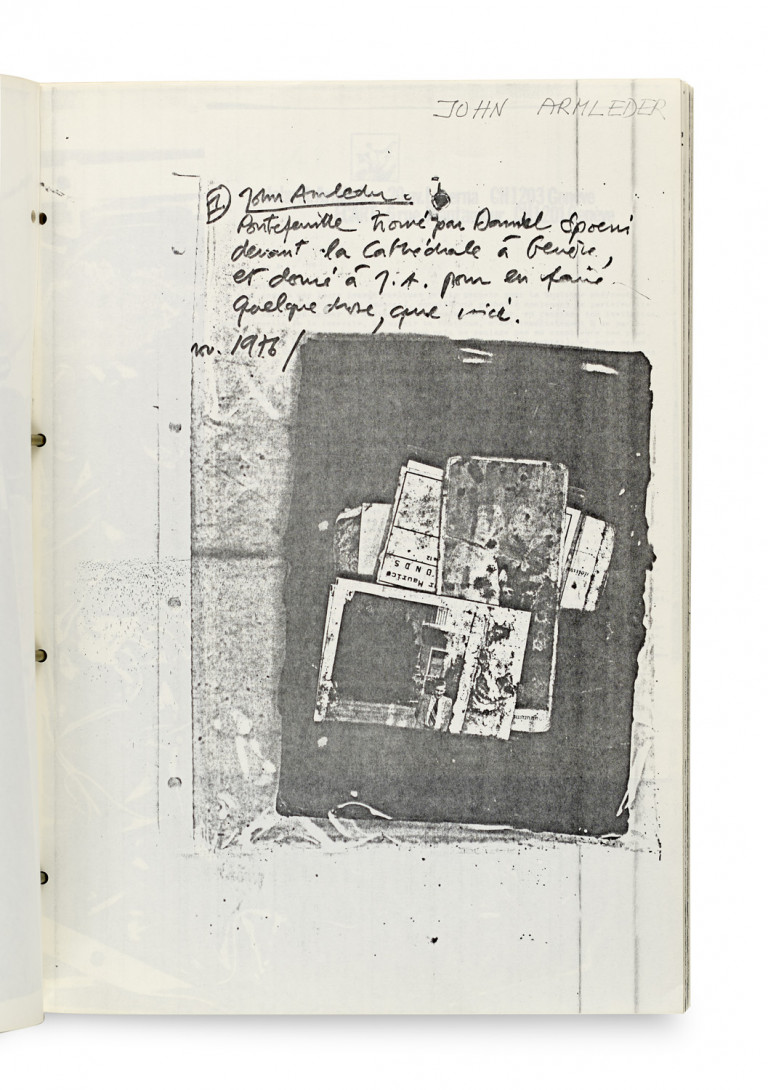 JOHN ARMLEDER
CH1203 Genève
1 John Armleder.
Portefeuille trouvé par Daniel Spoerri
devant la Cathédrale à Genève,
et donné à J.A. pour en faire
quelque chose, que voici.
nov. 1976 /
ONDS
r Maurice